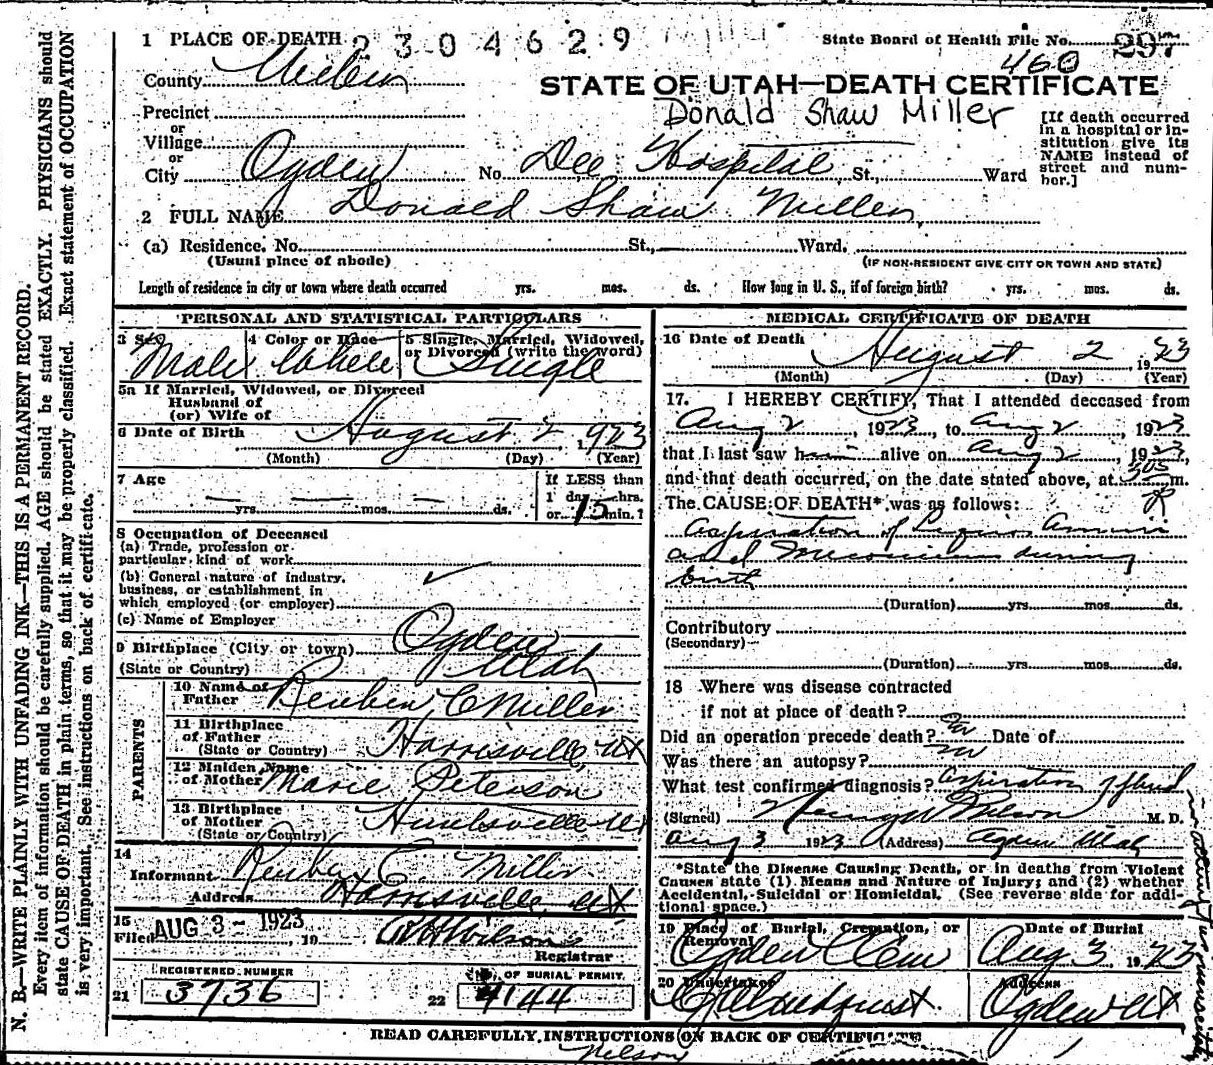 1 PLACE OF DEATH 2304629 Miller State Board of Health File No. 297
County Weber 460
STATE OF UTAH—DEATH CERTIFICATE
Precinct Donald Shaw Miller
or
Village
or
City Ogden No. Dee Hospital, St., Ward
[If death occurred
in a hospital or in-
stitution give its
NAME instead of
street and num-
ber.]
2 FULL NAME Donald Shaw Miller,
(a) Residence. No. St., Ward.
(Usual place of abode) (IF NON-RESIDENT GIVE CITY OR TOWN AND STATE)
Length of residence in city or town where death occurred yrs. mos. ds. How long in U. S., if of foreign birth? yrs. mos. ds.
PERSONAL AND STATISTICAL PARTICULARS
3 Sex Male
4 Color or Race White
5 Single, Married, Widowed,
or Divorced (write the word)
Single
5a If Married, Widowed, or Divorced
Husband of
(or) Wife of
6 Date of Birth August 2 1923
(Month) (Day) (Year)
7 Age — — —
yrs. mos. ds.
If LESS than
1 day hrs.
or 15 min.?
8 Occupation of Deceased
(a) Trade, profession or
particular kind of work
(b) General nature of industry,
business, or establishment in
which employed (or employer)
(c) Name of Employer
9 Birthplace (City or town) Ogden
(State or Country) Utah
PARENTS
10 Name of
Father Reuben C Miller
11 Birthplace
of Father
(State or Country) Harrisville, Ut
12 Maiden Name
of Mother Marie Peterson
13 Birthplace
of Mother
(State or Country) Huntsville Ut
14
Informant Reuben C. Miller
Address Harrisville, Ut
15
Filed AUG 3 - 1923, 19
Registrar
REGISTERED NUMBER
21 3736
NO. OF BURIAL PERMIT.
22 4144
MEDICAL CERTIFICATE OF DEATH
16 Date of Death August 2 1923
(Month) (Day) (Year)
17. I HEREBY CERTIFY, That I attended deceased from
Aug 2, 1923, to Aug 2, 1923
that I last saw him alive on Aug 2, 1923,
and that death occurred, on the date stated above, at 505 P m.
The CAUSE OF DEATH* was as follows:
Aspiration of Liquor Amnii
and Meconium during
birth
(Duration) yrs. mos. ds.
Contributory
(Secondary)
(Duration) yrs. mos. ds.
18 Where was disease contracted
if not at place of death?
Did an operation precede death? No Date of
Was there an autopsy? No
What test confirmed diagnosis? Aspiration of fluid
(Signed) Nelson M. D.
Aug 3 1923 (Address) Ogden Utah
*State the Disease Causing Death, or in deaths from Violent
Causes state (1) Means and Nature of Injury; and (2) whether
Accidental, Suicidal or Homicidal. (See reverse side for addi-
tional space.)
19 Place of Burial, Cremation, or
Removal
Ogden Cem
Date of Burial
Aug 3 1923
20 Undertaker
Address
Ogden Ut
READ CAREFULLY INSTRUCTIONS ON BACK OF CERTIFICATE
Nelson
N. B.—WRITE PLAINLY WITH UNFADING INK—THIS IS A PERMANENT RECORD.
Every item of information should be carefully supplied. AGE should be stated EXACTLY. PHYSICIANS should
state CAUSE OF DEATH in plain terms, so that it may be properly classified. Exact statement of OCCUPATION
is very important. See instructions on back of certificate.